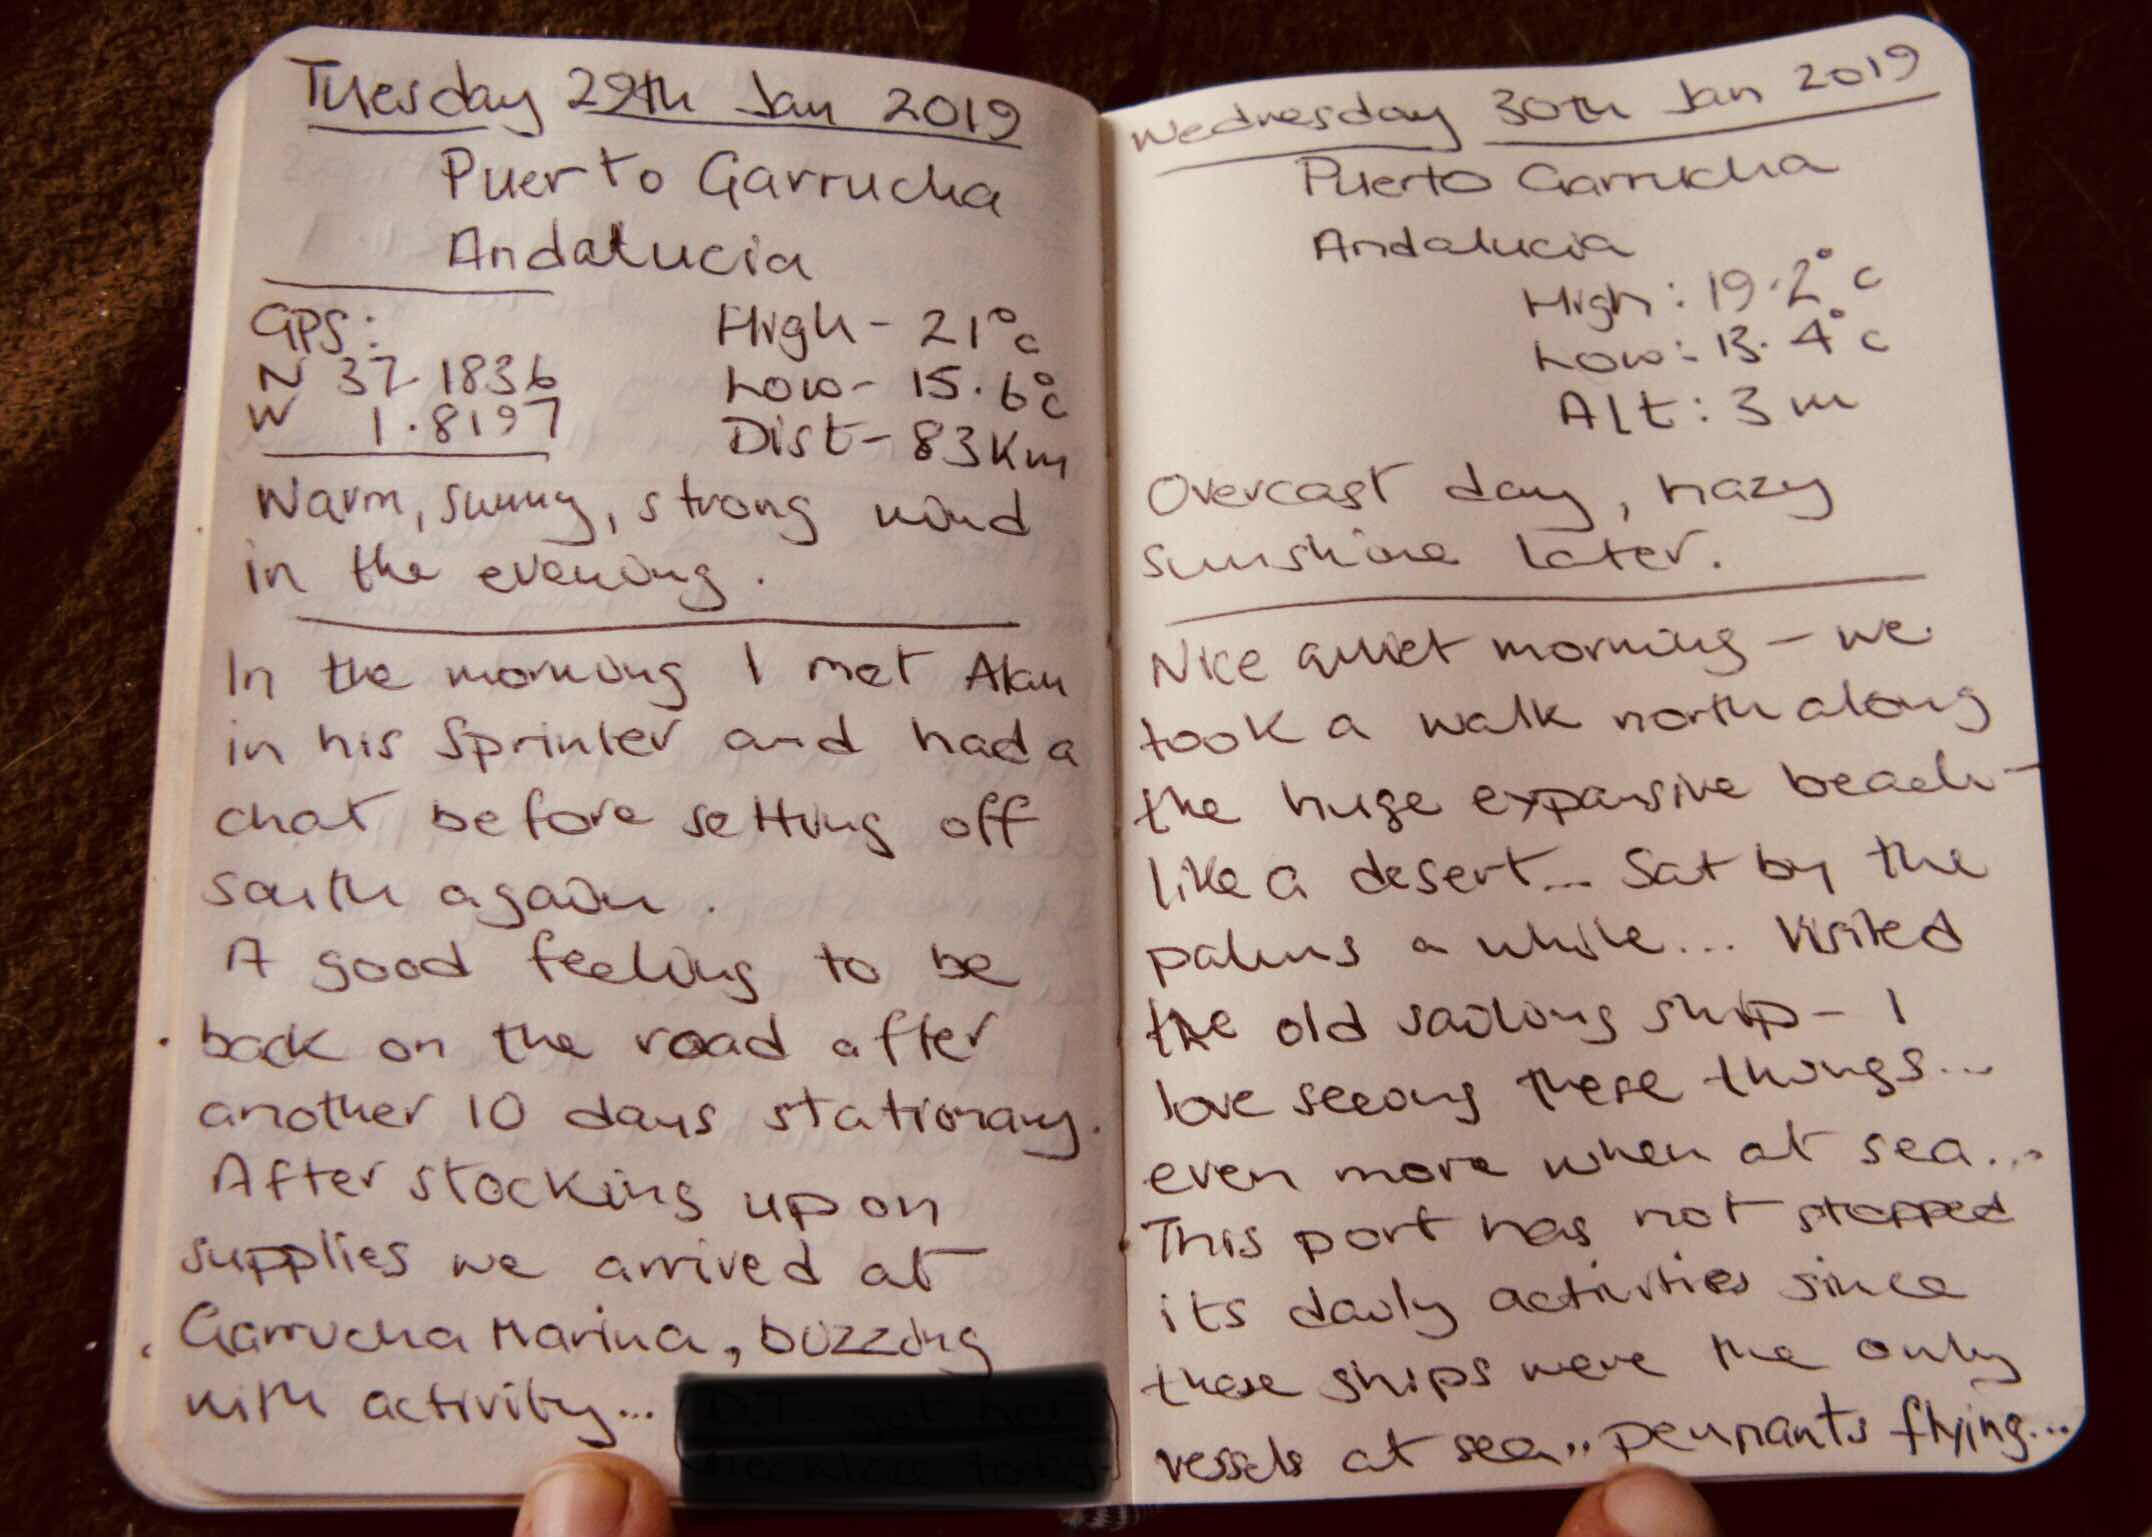 Tuesday 29th Jan 2019
Puerto Garrucha
Andalucia
GPS:
N 37.1836
W 1.8197
High - 21°c
Low - 15.6°c
Dist - 83Km
Warm, sunny, strong wind
in the evening.
In the morning I met Alan
in his Sprinter and had a
chat before setting off
south again.
A good feeling to be
back on the road after
another 10 days stationary.
After stocking up on
supplies we arrived at
Garrucha Marina, buzzing
with activity...
Wednesday 30th Jan 2019
Puerto Garrucha
Andalucia
High: 19.2°c
Low: 13.4°c
Alt: 3m
Overcast day, hazy
sunshine later.
Nice quiet morning - we
took a walk north along
the huge expansive beach -
like a desert... Sat by the
palms a while... Visited
the old sailing ship - I
love seeing these things...
even more when at sea...
This port has not stopped
its daily activities since
these ships were the only
vessels at sea.. pennants flying...